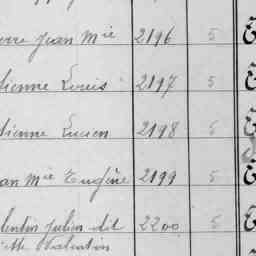 erre Jean Mie 2196 5
tienne Louis 2197 5
tienne Lucien 2198 5
an Mie Eugène 2199 5
lentin julien dit 2200 5
Valentin